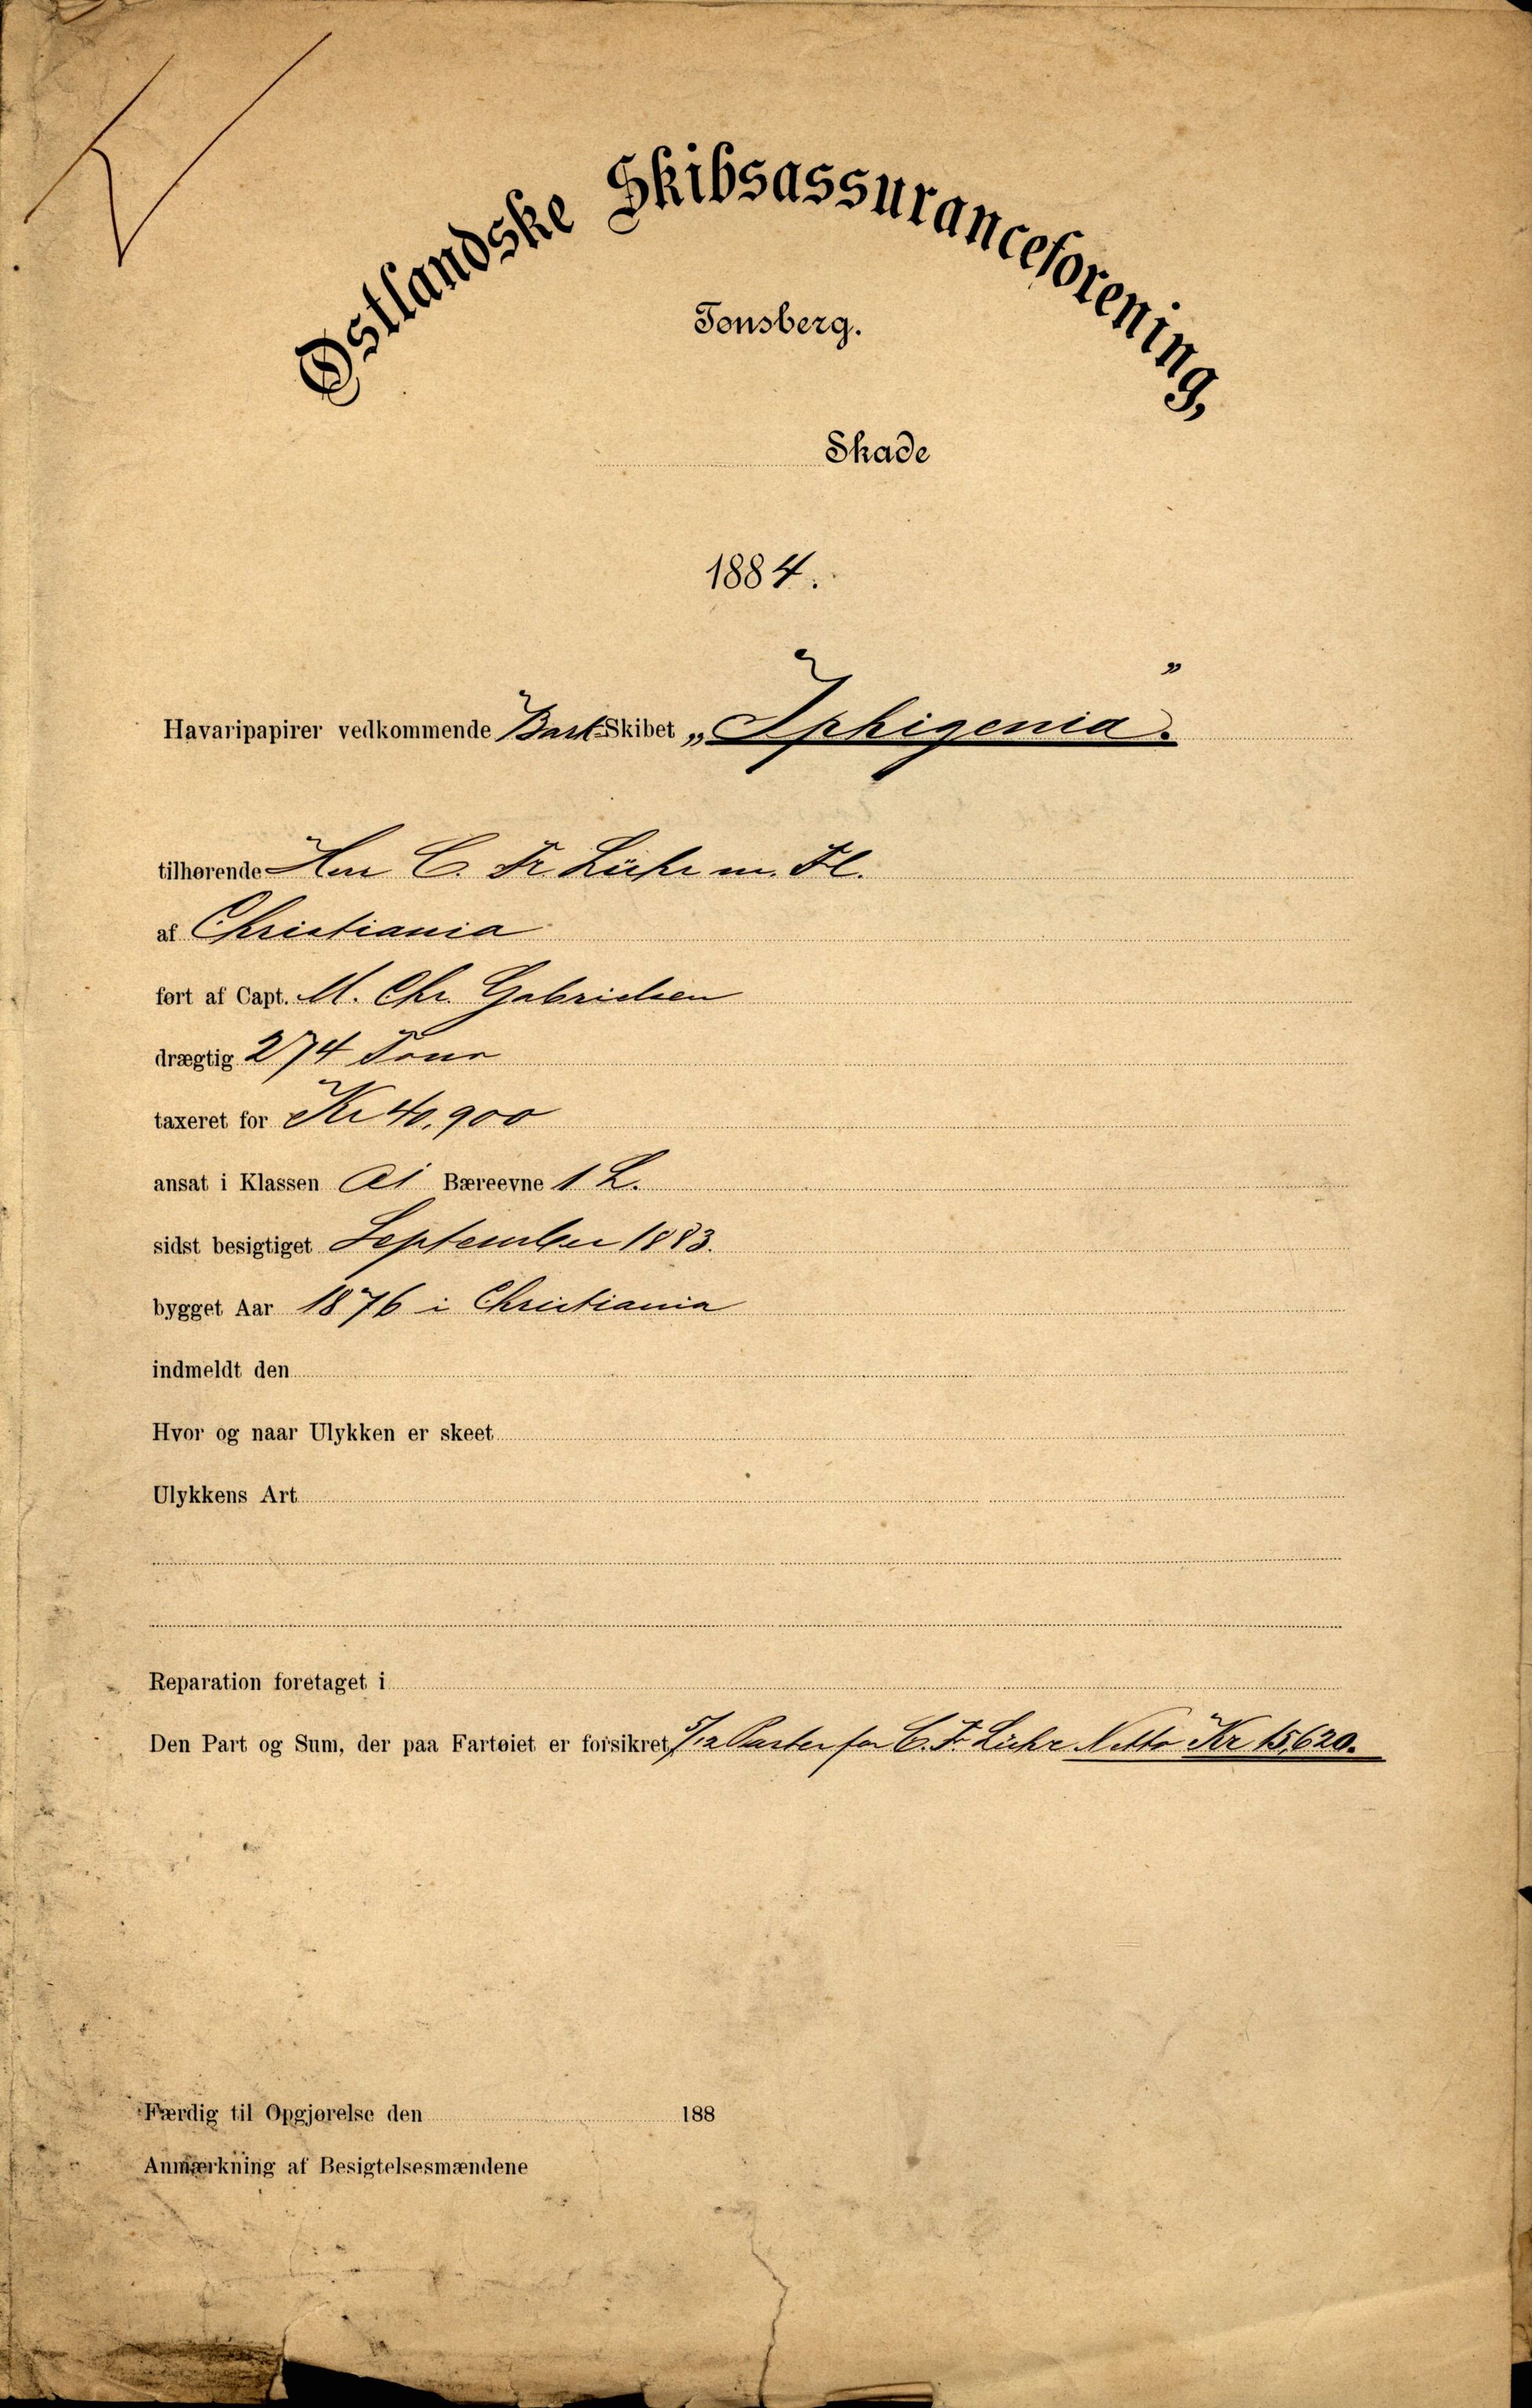 Østlandske Skibsassuranceforening,
Tonsberg.
Skade
1884.
Havaripapirer vedkommende Bark Skibet „Iphigenia”.
tilhørende Herr C. Fr. Lühr m. Fl.
af Christiania
ført af Capt. M. Chr. Gabrielsen
drægtig 274 Tons
taxeret for Kr 40,900
ansat i Klassen A1 Bæreevne 1 L.
sidst besigtiget September 1883.
bygget Aar 1876 i Christiania
indmeldt den
Hvor og naar Ulykken er skeet
Ulykkens Art
Reparation foretaget i
Den Part og Sum, der paa Fartøiet er forsikret, 5/12 Parter for C. F. Lühr Netto Kr 15,620.
Færdig til Opgjørelse den 188
Anmærkning af Besigtelsesmændene